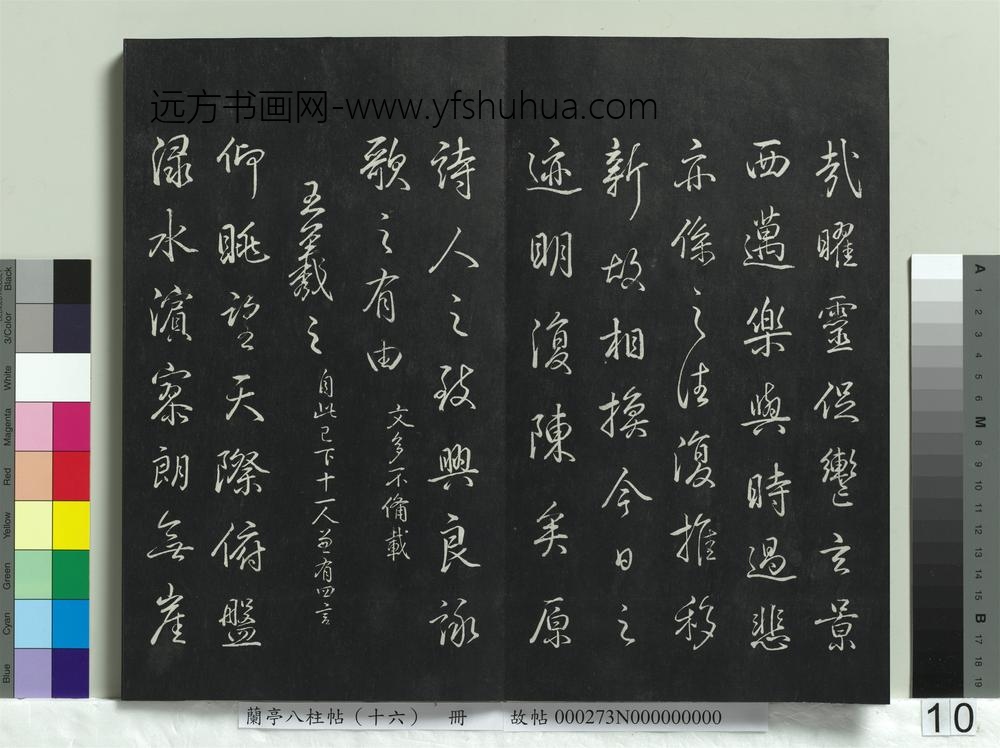 远方书画网-www.yfshuhua.com
哉曜靈促轡玄景
西邁樂與時過悲
亦係之往復推移
新故相換今日之
迹明復陳矣原
詩人之致興良詠
歌之有由 文多不備載
王羲之 自此已下十一人並有四言
仰眺望天際俯盤
淥水濱寥朗無崖
蘭亭八柱帖（十六） 冊 故帖 000273N000000000
10
Black
3/Color
White
Magenta
Red
Yellow
Green
Cyan
Blue
A 1 2 3 4 5 6 M 8 9 10 11 12 13 14 15 B 17 18 19